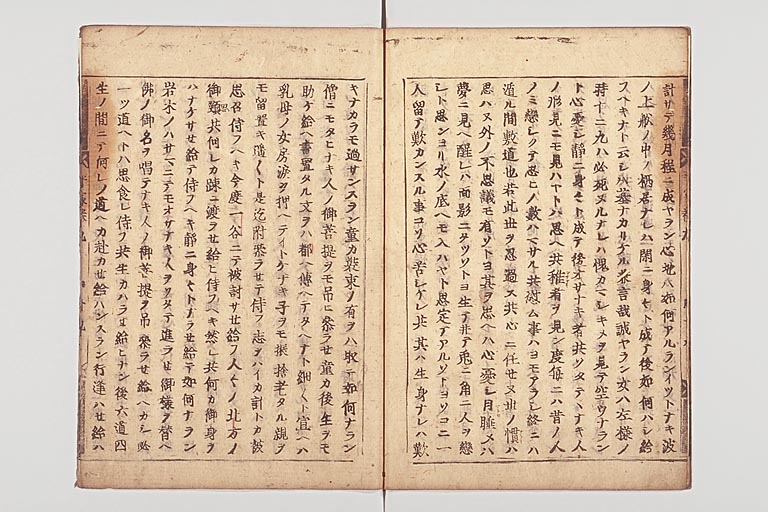 計サテ幾月程ニ成ヤラン心地ハ如何アルランイツトナキ波
ノ上舩ノ中ノ栖居ナレハ閑ニ身々ト成テ後如何ハシ給
スヘキナト云シハ墓ナカリケル泰言哉誠ヤラン女ハ左様ノ
時十ニ九ハ必死スルナレハ愧カマレキメヲ見テ空ウナラン
ト心憂シ静ニ身々ト成テ後オサナキ者共ソタテヽナキ人
ノ形見ニモ見ハヤトハ思ヘ共稚者ヲ見ン度毎ニハ昔ノ人
ノミ戀シクテ思ヒノ數ハマサル共慰ム事ハヨモアラシ終ニハ
遁ル間敷道也若此世ヲ忍過ス共心ニ任セヌ世ノ慣ハ
思ハヌ外ノ不思議モ有ソトヨ其ヲ思ヘハ心憂シ目睡メハ
夢ニ見ヘ醒レハ面影ニタツソトヨ生テ井テ兎ニ角ニ人ヲ戀
シト思ンヨリ水ノ底ヘモ入ハヤト思定テアルソトヨソコニ一
人留テ歎カンスル事コソ心苦シケレ共其ハ生身ナレハ歎
キナカラモ過サンスラン童カ装束ノ有ヲハ取テ如何ナラン
僧ニモタヒナキ人ノ御菩提ヲモ吊ヒ參ラセ童カ後生ヲモ
助ケ給ヘ書置タル文ヲハ都ヘ傳ヘテタヘナト細々ト宣ヘハ
乳母ノ女房涙ヲ押ヘテイトケナキ子ヲモ振捨老タル親ヲ
モ留置キ隨ヽト是迄附參ラセテ侍フ志ヲハイカ計トカ被
思召侍フヘキ今度一谷ニテ被討サセ給フ人々ノ北方ノ
御歎共何レカ踈ニ渡ラセ給ヒ侍フヘキ然レ共何カ御身ヲ
ハナケサセ給テ侍フヘキ静ニ身々トナラセ給テ如何ナラン
岩木ノハサマニテモオサナキ人ヲソタテ進ラセ御樣ヲ替ヘ
佛ノ御名ヲ唱テナキ人ノ御菩提ヲ吊參ラセ給ヘカシ必
一ツ道ヘトハ思食レ侍フ共生カハラセ給ヒナン後六道四
生ノ間ニテ何レノ道ヘカ赴カセ給ハンスラン行逢ハセ給ハ